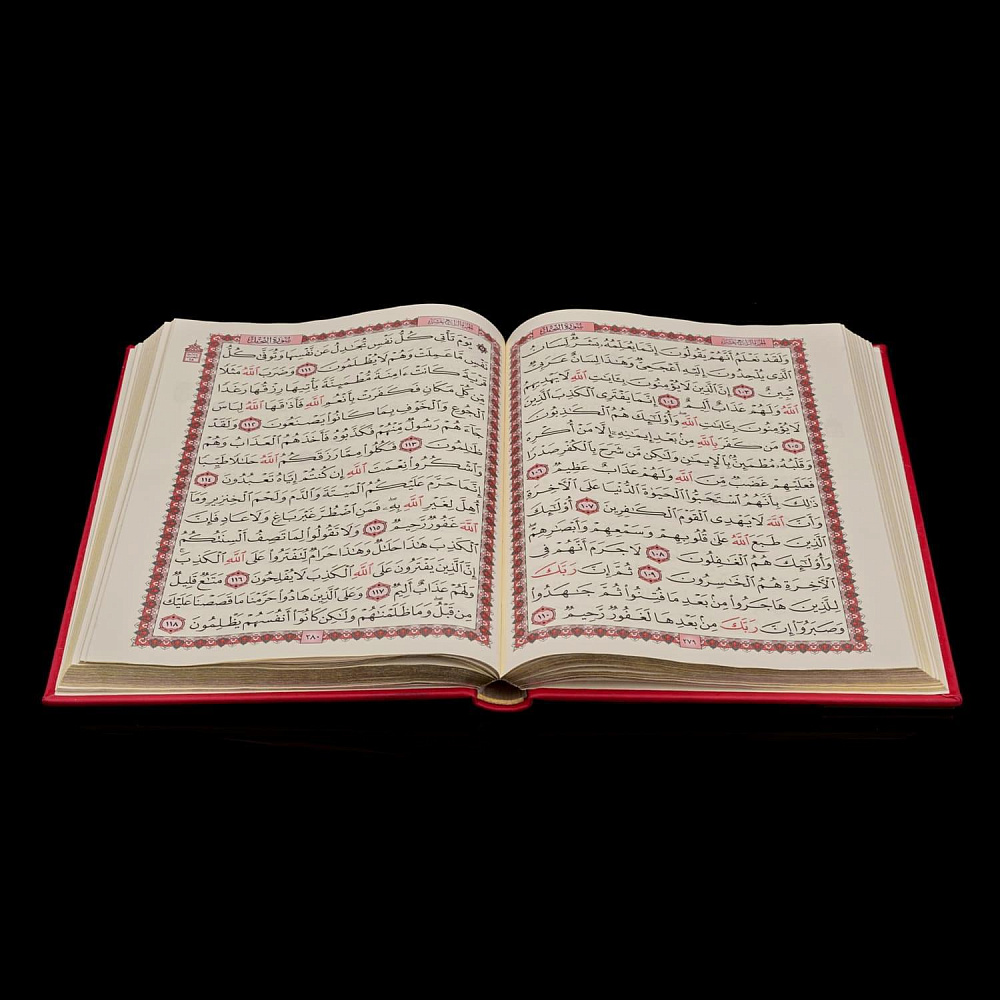 سُورَةُ النَّحْلِ
وَلَقَدْ نَعْلَمُ أَنَّهُمْ يَقُولُونَ إِنَّمَا يُعَلِّمُهُ بَشَرٌ لِّسَانُ
الَّذِي يُلْحِدُونَ إِلَيْهِ أَعْجَمِيٌّ وَهَٰذَا لِسَانٌ عَرَبِيٌّ
مُّبِينٌ ١٠٣ إِنَّ الَّذِينَ لَا يُؤْمِنُونَ بِـَٔايَٰتِ اللَّهِ لَا يَهْدِيهِمُ
اللَّهُ وَلَهُمْ عَذَابٌ أَلِيمٌ ١٠٤ إِنَّمَا يَفْتَرِي الْكَذِبَ الَّذِينَ
لَا يُؤْمِنُونَ بِـَٔايَٰتِ اللَّهِ وَأُوْلَٰٓئِكَ هُمُ الْكَٰذِبُونَ
١٠٥ مَن كَفَرَ بِاللَّهِ مِنۢ بَعْدِ إِيمَٰنِهِۦٓ إِلَّا مَنْ أُكْرِهَ
وَقَلْبُهُۥ مُطْمَئِنٌّۢ بِالْإِيمَٰنِ وَلَٰكِن مَّن شَرَحَ بِالْكُفْرِ صَدْرًا
فَعَلَيْهِمْ غَضَبٌ مِّنَ اللَّهِ وَلَهُمْ عَذَابٌ عَظِيمٌ ١٠٦
ذَٰلِكَ بِأَنَّهُمُ اسْتَحَبُّوا الْحَيَوٰةَ الدُّنْيَا عَلَى الْأٓخِرَةِ
وَأَنَّ اللَّهَ لَا يَهْدِي الْقَوْمَ الْكَٰفِرِينَ ١٠٧ أُوْلَٰٓئِكَ
الَّذِينَ طَبَعَ اللَّهُ عَلَىٰ قُلُوبِهِمْ وَسَمْعِهِمْ وَأَبْصَٰرِهِمْ
وَأُوْلَٰٓئِكَ هُمُ الْغَٰفِلُونَ ١٠٨ لَا جَرَمَ أَنَّهُمْ فِي
الْأٓخِرَةِ هُمُ الْخَٰسِرُونَ ١٠٩ ثُمَّ إِنَّ رَبَّكَ
لِلَّذِينَ هَاجَرُوا مِنۢ بَعْدِ مَا فُتِنُوا ثُمَّ جَٰهَدُوا
وَصَبَرُوٓا إِنَّ رَبَّكَ مِنۢ بَعْدِهَا لَغَفُورٌ رَّحِيمٌ ١١٠
٢٧٩
سُورَةُ النَّحْلِ
يَوْمَ تَأْتِي كُلُّ نَفْسٍ تُجَٰدِلُ عَن نَّفْسِهَا وَتُوَفَّىٰ كُلُّ
نَفْسٍ مَّا عَمِلَتْ وَهُمْ لَا يُظْلَمُونَ ١١١ وَضَرَبَ اللَّهُ مَثَلًا
قَرْيَةً كَانَتْ ءَامِنَةً مُّطْمَئِنَّةً يَأْتِيهَا رِزْقُهَا رَغَدًا
مِّن كُلِّ مَكَانٍ فَكَفَرَتْ بِأَنْعُمِ اللَّهِ فَأَذَٰقَهَا اللَّهُ لِبَاسَ
الْجُوعِ وَالْخَوْفِ بِمَا كَانُوا يَصْنَعُونَ ١١٢ وَلَقَدْ
جَآءَهُمْ رَسُولٌ مِّنْهُمْ فَكَذَّبُوهُ فَأَخَذَهُمُ الْعَذَابُ وَهُمْ
ظَٰلِمُونَ ١١٣ فَكُلُوا مِمَّا رَزَقَكُمُ اللَّهُ حَلَٰلًا طَيِّبًا
وَاشْكُرُوا نِعْمَتَ اللَّهِ إِن كُنتُمْ إِيَّاهُ تَعْبُدُونَ ١١٤
إِنَّمَا حَرَّمَ عَلَيْكُمُ الْمَيْتَةَ وَالدَّمَ وَلَحْمَ الْخِنزِيرِ وَمَآ
أُهِلَّ لِغَيْرِ اللَّهِ بِهِۦ فَمَنِ اضْطُرَّ غَيْرَ بَاغٍ وَلَا عَادٍ فَإِنَّ
اللَّهَ غَفُورٌ رَّحِيمٌ ١١٥ وَلَا تَقُولُوا لِمَا تَصِفُ أَلْسِنَتُكُمُ
الْكَذِبَ هَٰذَا حَلَٰلٌ وَهَٰذَا حَرَامٌ لِّتَفْتَرُوا عَلَى اللَّهِ الْكَذِبَ
إِنَّ الَّذِينَ يَفْتَرُونَ عَلَى اللَّهِ الْكَذِبَ لَا يُفْلِحُونَ ١١٦ مَتَٰعٌ قَلِيلٌ
وَلَهُمْ عَذَابٌ أَلِيمٌ ١١٧ وَعَلَى الَّذِينَ هَادُوا حَرَّمْنَا مَا قَصَصْنَا عَلَيْكَ
مِن قَبْلُ وَمَا ظَلَمْنَٰهُمْ وَلَٰكِن كَانُوٓا أَنفُسَهُمْ يَظْلِمُونَ ١١٨
٢٨٠